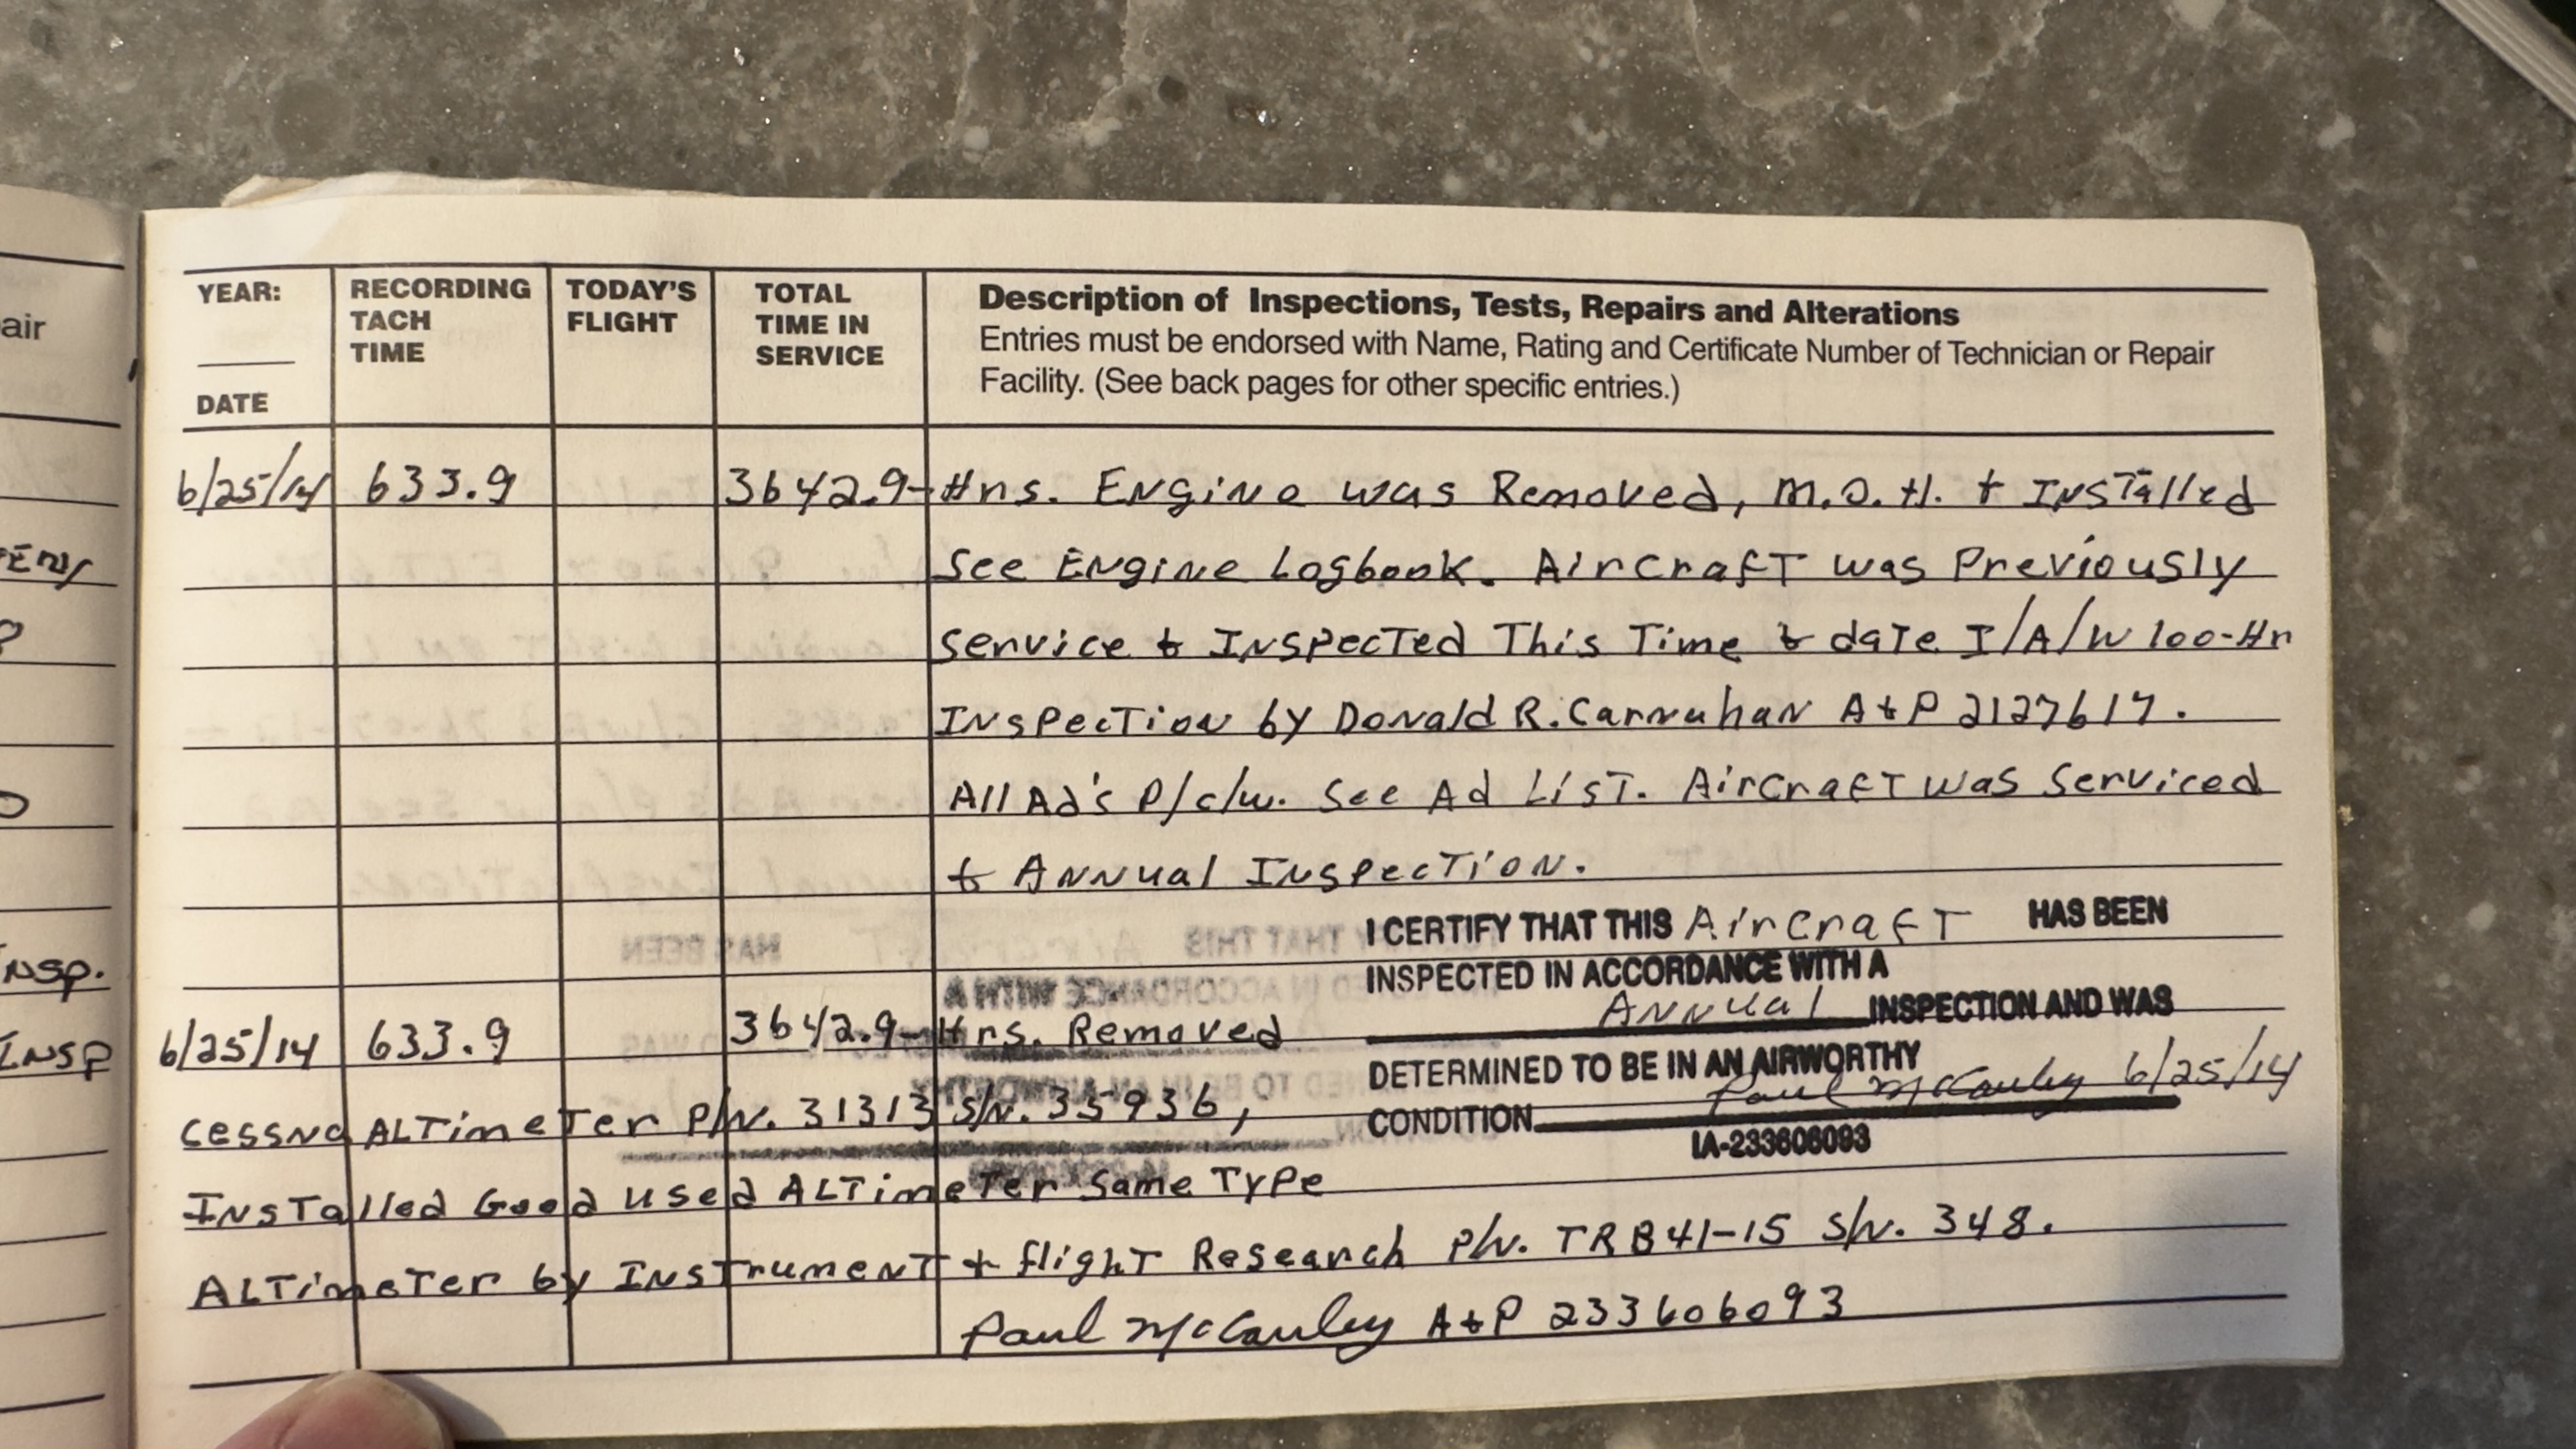 air
YEAR:
DATE
RECORDING TACH TIME
TODAY'S FLIGHT
TOTAL TIME IN SERVICE
Description of Inspections, Tests, Repairs and Alterations
Entries must be endorsed with Name, Rating and Certificate Number of Technician or Repair
Facility. (See back pages for other specific entries.)
6/25/14 633.9 3642.9- Hrs. Engine was Removed, M.O.H. + Installed
See Engine Logbook. Aircraft was Previously
Service & Inspected This Time & date I/A/W 100-Hr
Inspection by Donald R. Carnuhan A&P 2127617.
All Ad's P/c/w. See Ad List. Aircraft was Serviced
& Annual Inspection.
I CERTIFY THAT THIS Aircraft HAS BEEN
INSPECTED IN ACCORDANCE WITH A
Annual INSPECTION AND WAS
DETERMINED TO BE IN AN AIRWORTHY
CONDITION Paul McCauley 6/25/14
IA-233606093
nsp.
Insp
6/25/14 633.9 3642.9- Hrs. Removed
Cessna ALTimeTer P/N. 31313 S/N. 35936,
Installed Good used ALTimeTer Same Type
ALTimeTer by Instrument + flight Research P/N. TRB41-15 S/N. 348.
Paul McCauley A&P 233606093